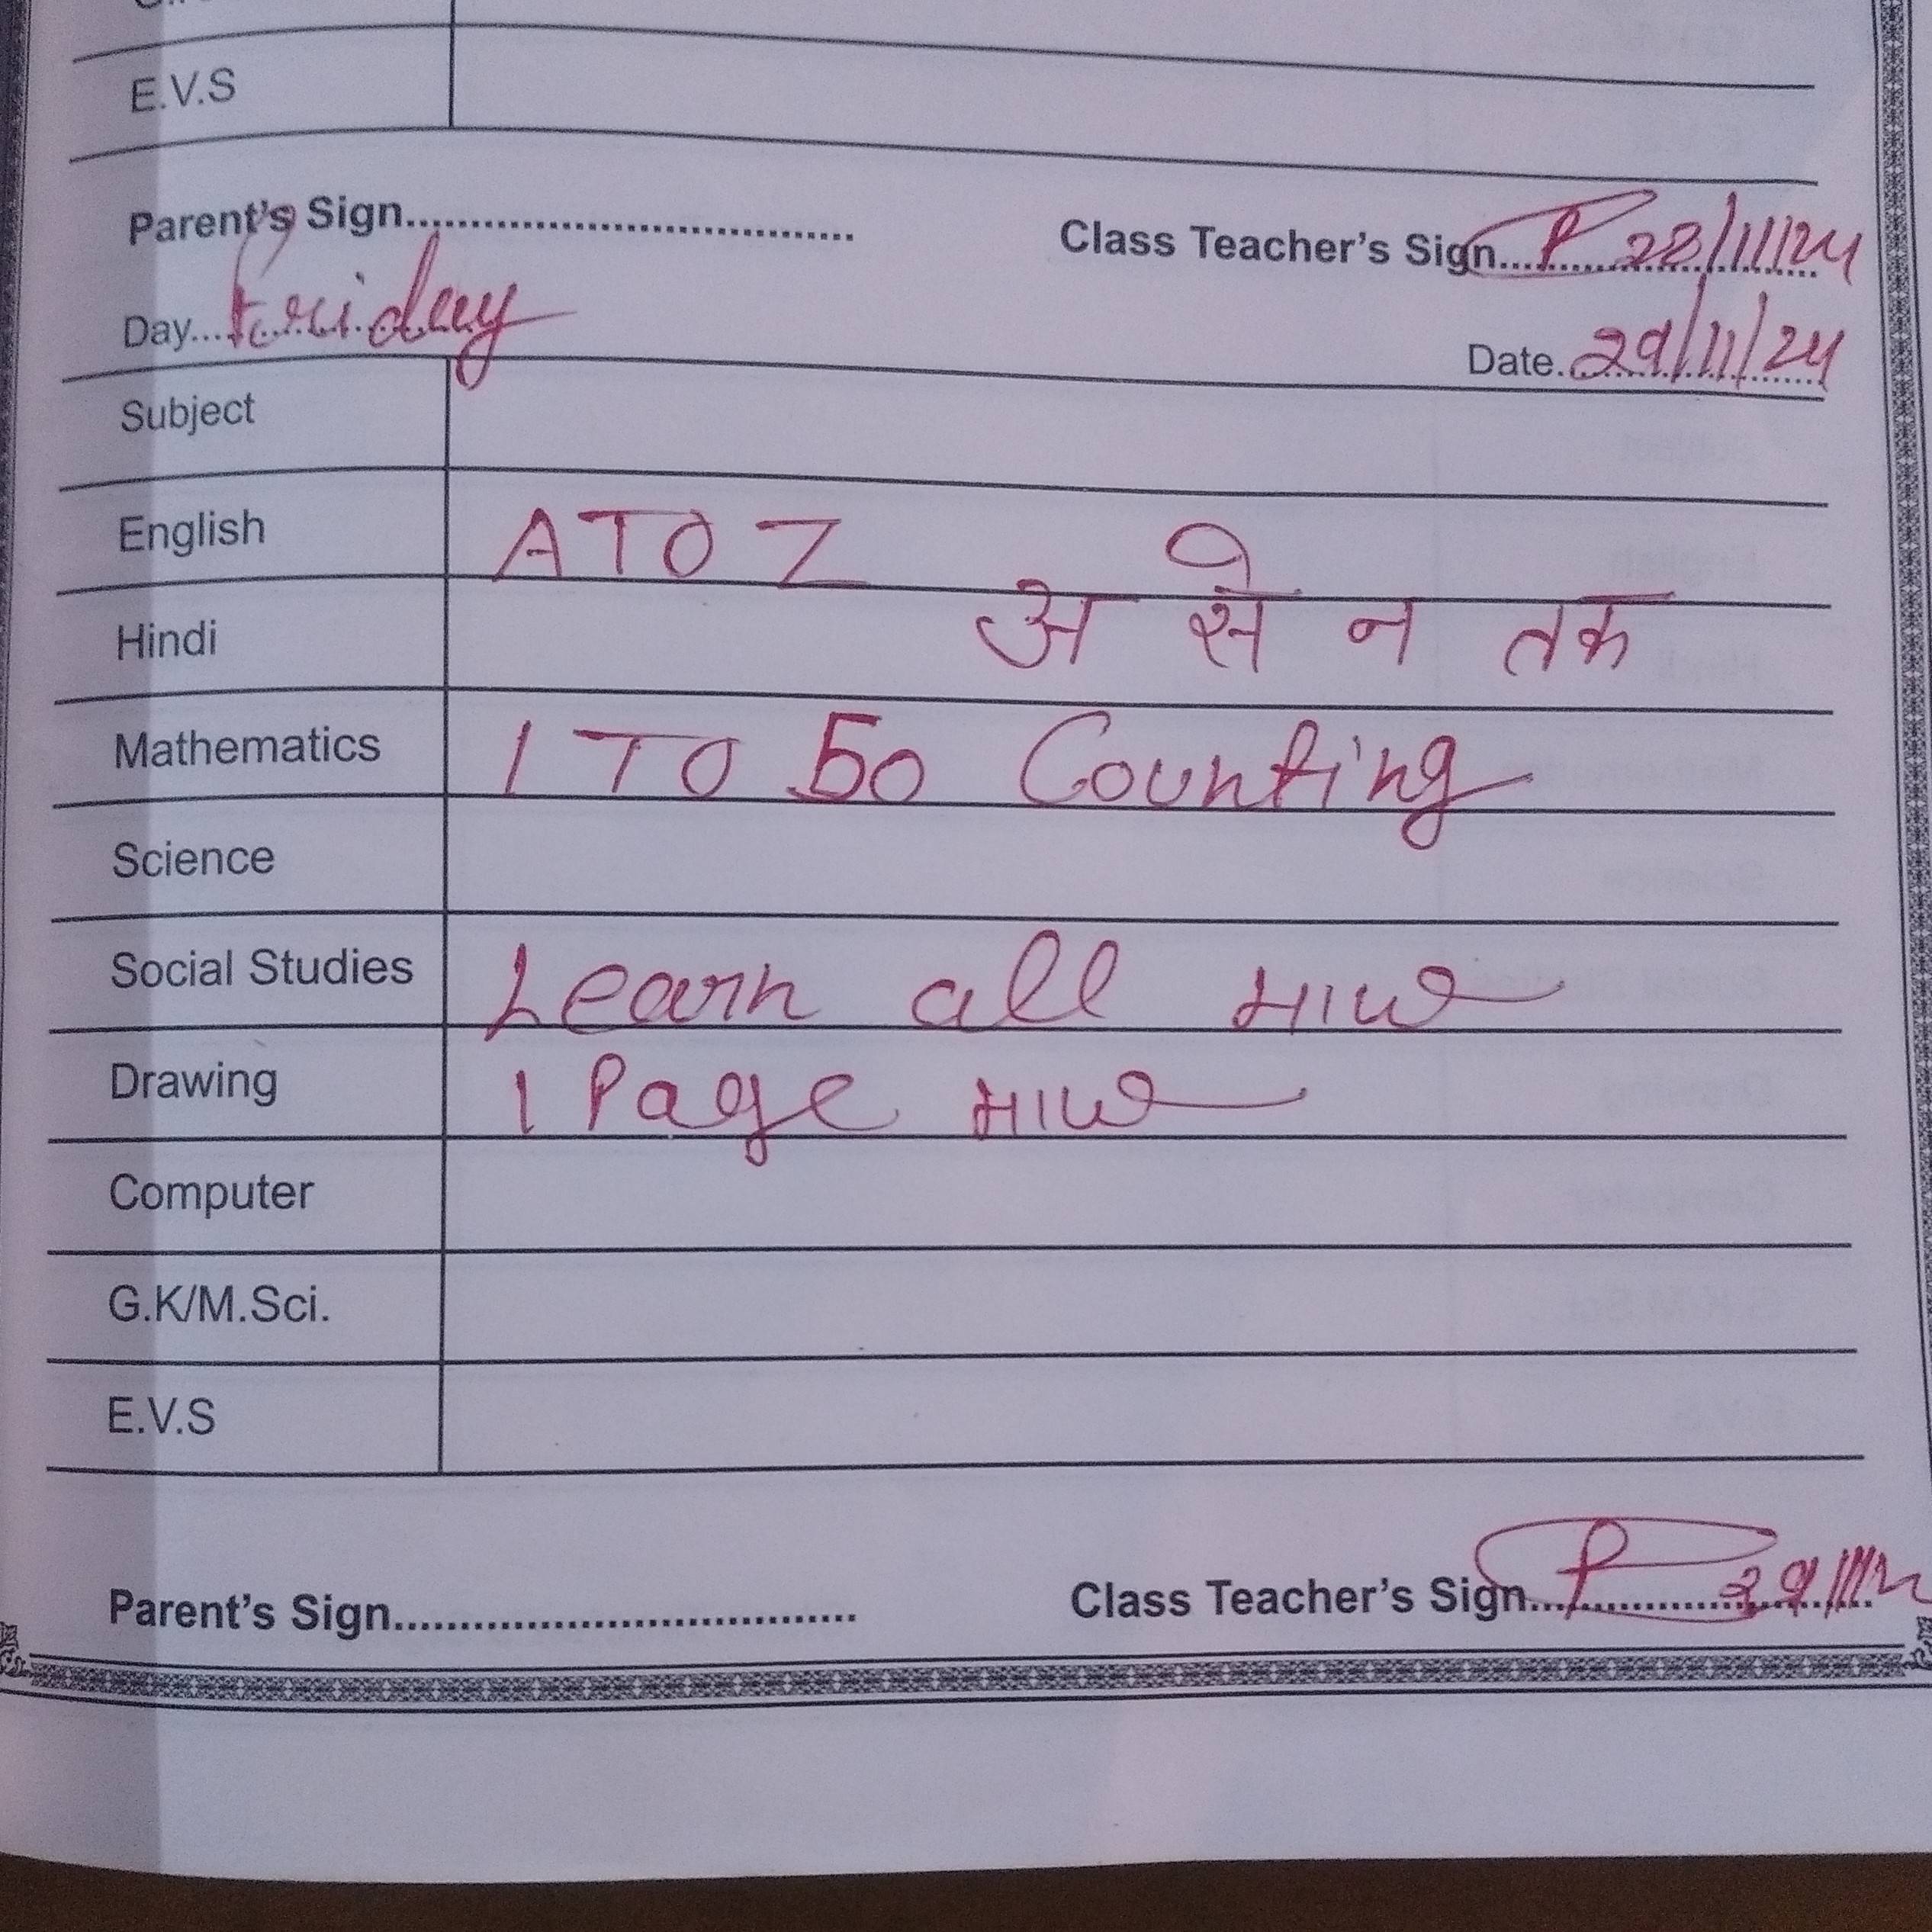 E.V.S
Parent's Sign.................................... Class Teacher's Sign........................ 28/11/24
Day...Friday Date.29/11/24
Subject
English A TO Z
Hindi अ से न तक
Mathematics 1 TO 50 Counting
Science
Social Studies Learn all
Drawing 1 Page
Computer
G.K/M.Sci.
E.V.S
Parent's Sign.................................... Class Teacher's Sign........................